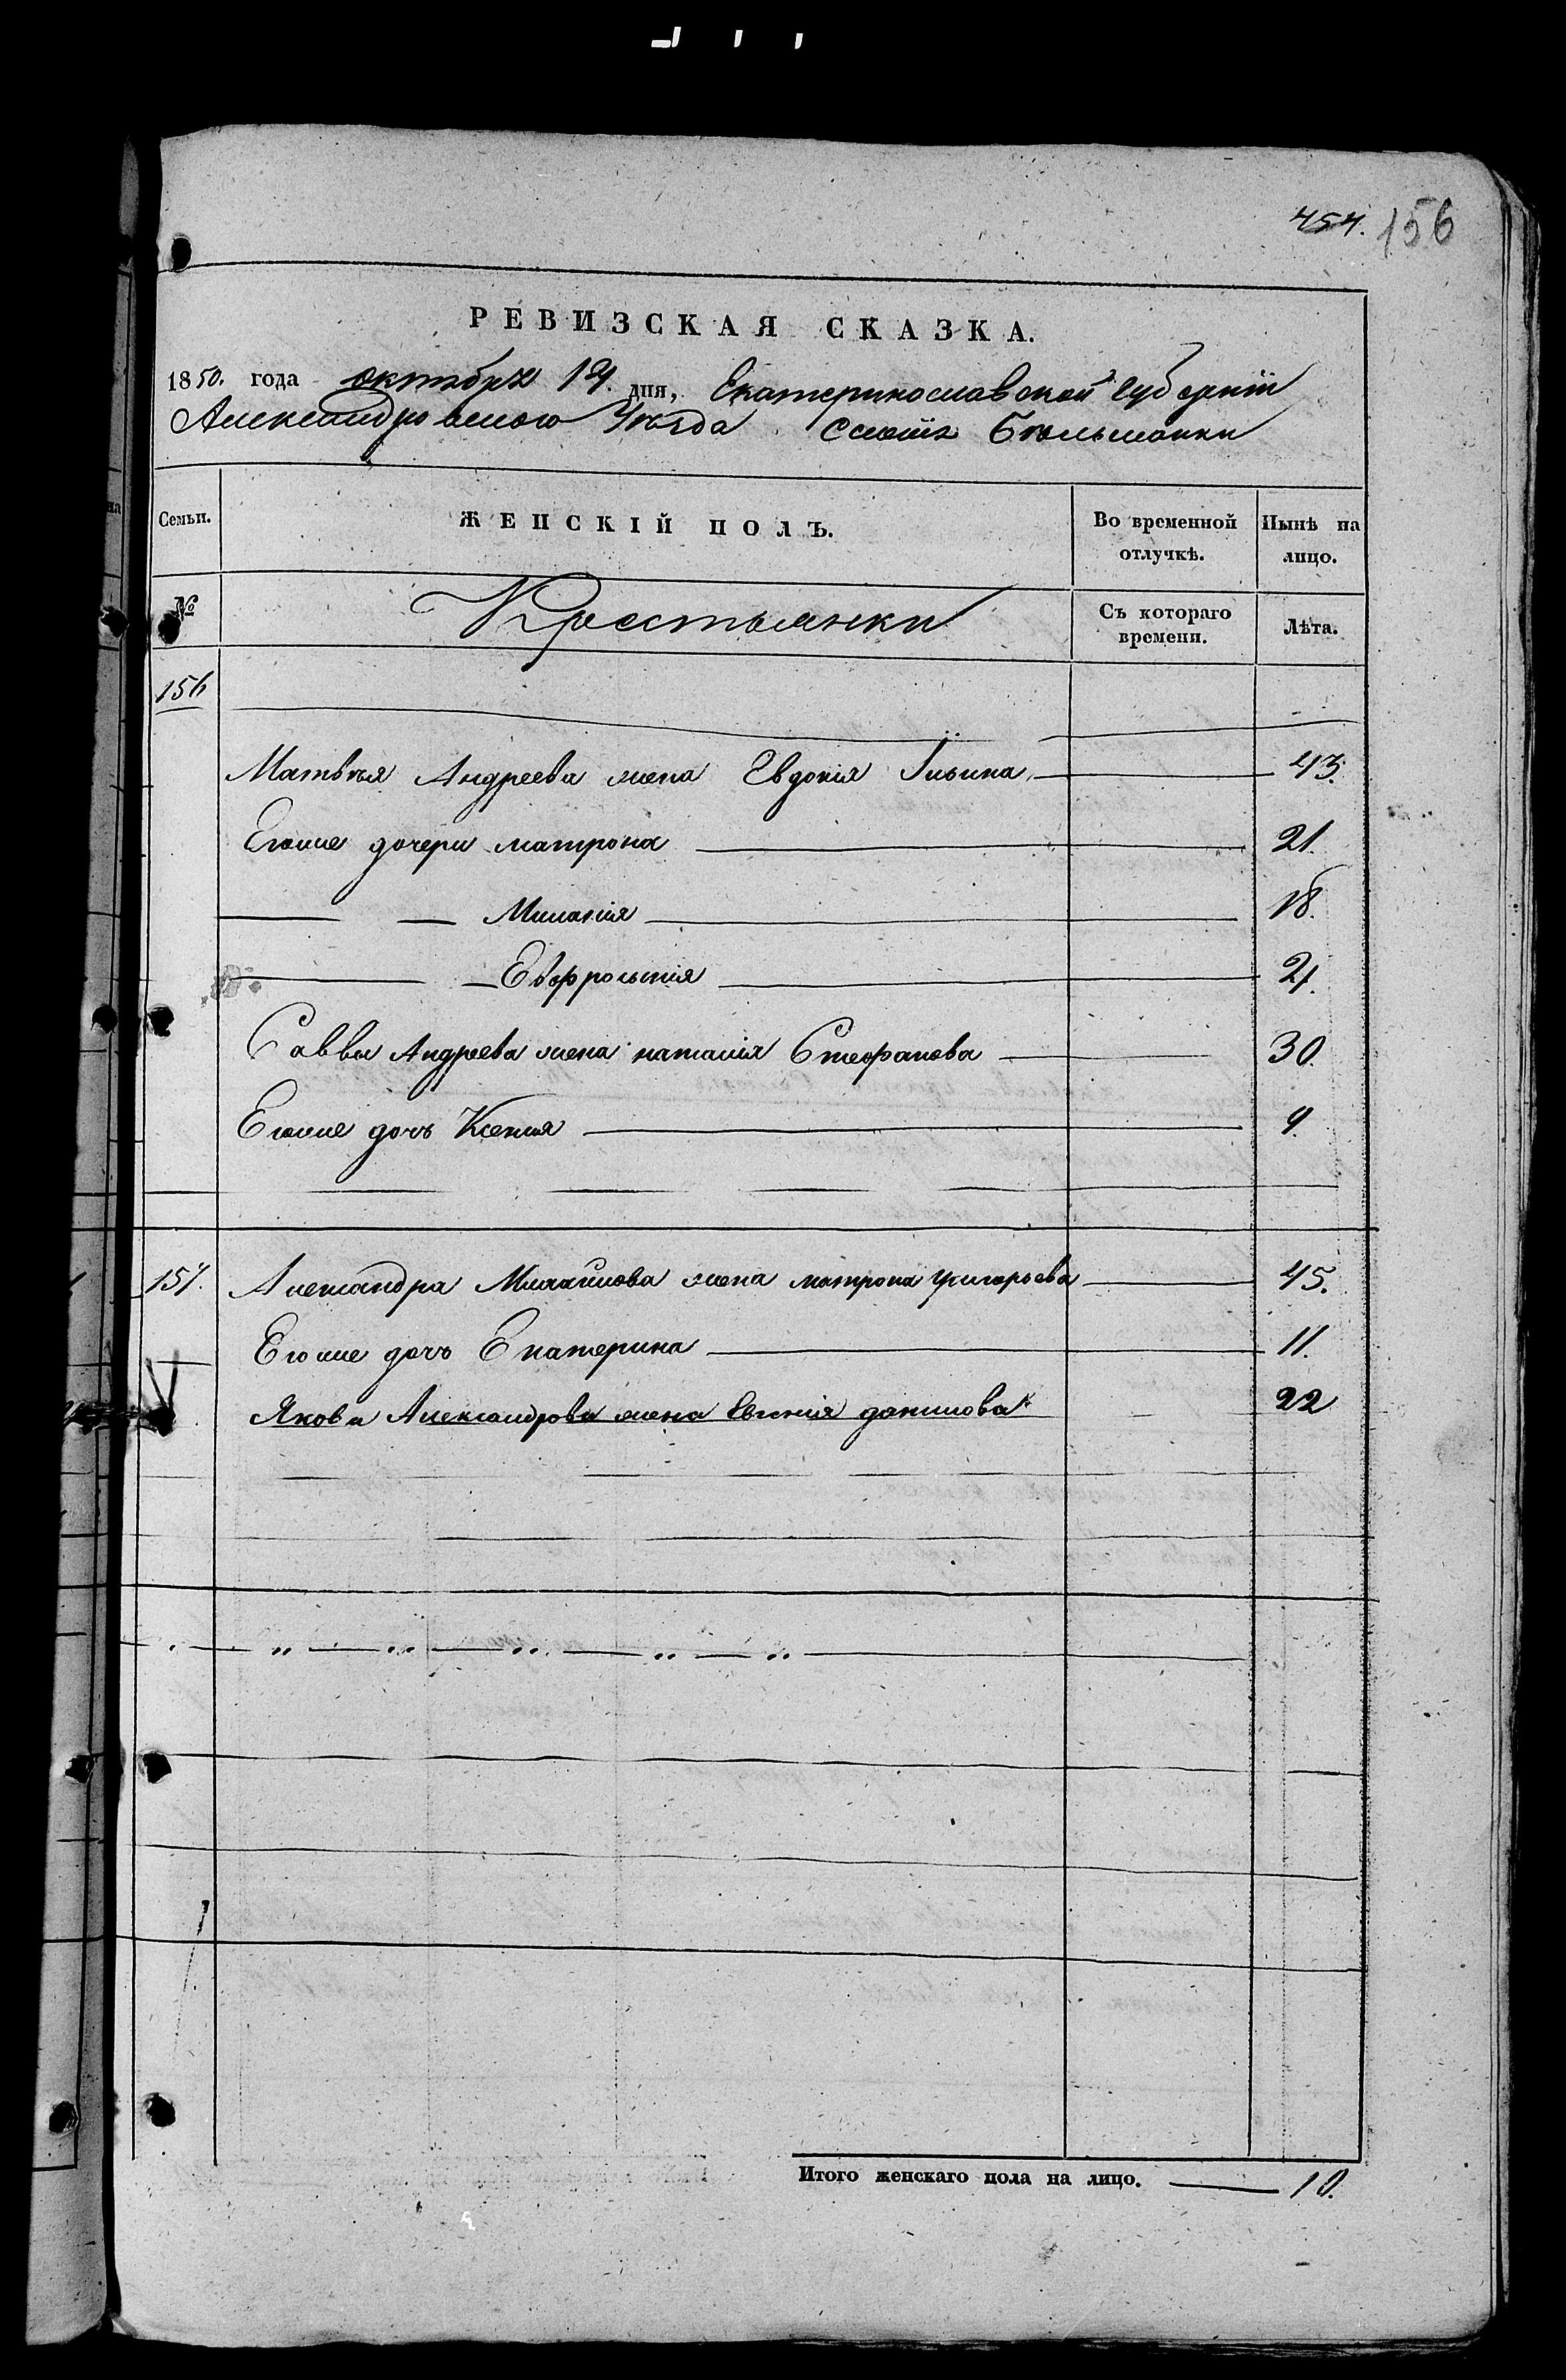 454. 156
РЕВИЗСКАЯ СКАЗКА.
1850. года октября 14. дня, Екатеринославской Губернiи
Александровского Уѣзда Слобiды Бѣльманки
Семьи.
ЖЕНСКІЙ ПОЛЪ.
Во временной отлучкѣ.
Нынѣ на лицо.
№
Крестьянки
Съ котораго времени.
Лѣта.
156
Матвѣя Андреева жена Евдокия Ильина 43.
Егоже дочери матрона 21.
Миланiя 18.
Евфросинiя
Саввы Андреева жена наталiя Стефанова 30.
Егоже дочь Ксения 9.
157. Александра Михайлова жена матрона григорьева 45.
Егоже дочь Екатерина 11.
Якова Александрова жена Евгения данилова 22
Итого женскаго пола на лицо. 10.